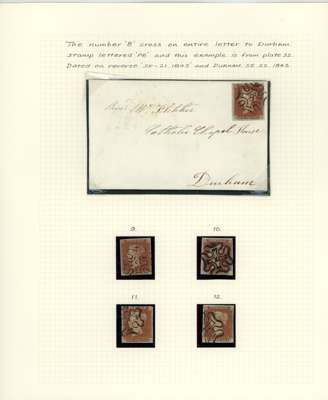 The number '8' cross on entire letter to Durham.
Stamp lettered 'PE' and this example is from plate 32.
Dated on reverse 'SE-21 1843' and Durham SE 22. 1843.
Mr.
Catholic Chapel House
Durham
9. 10.
11. 12.